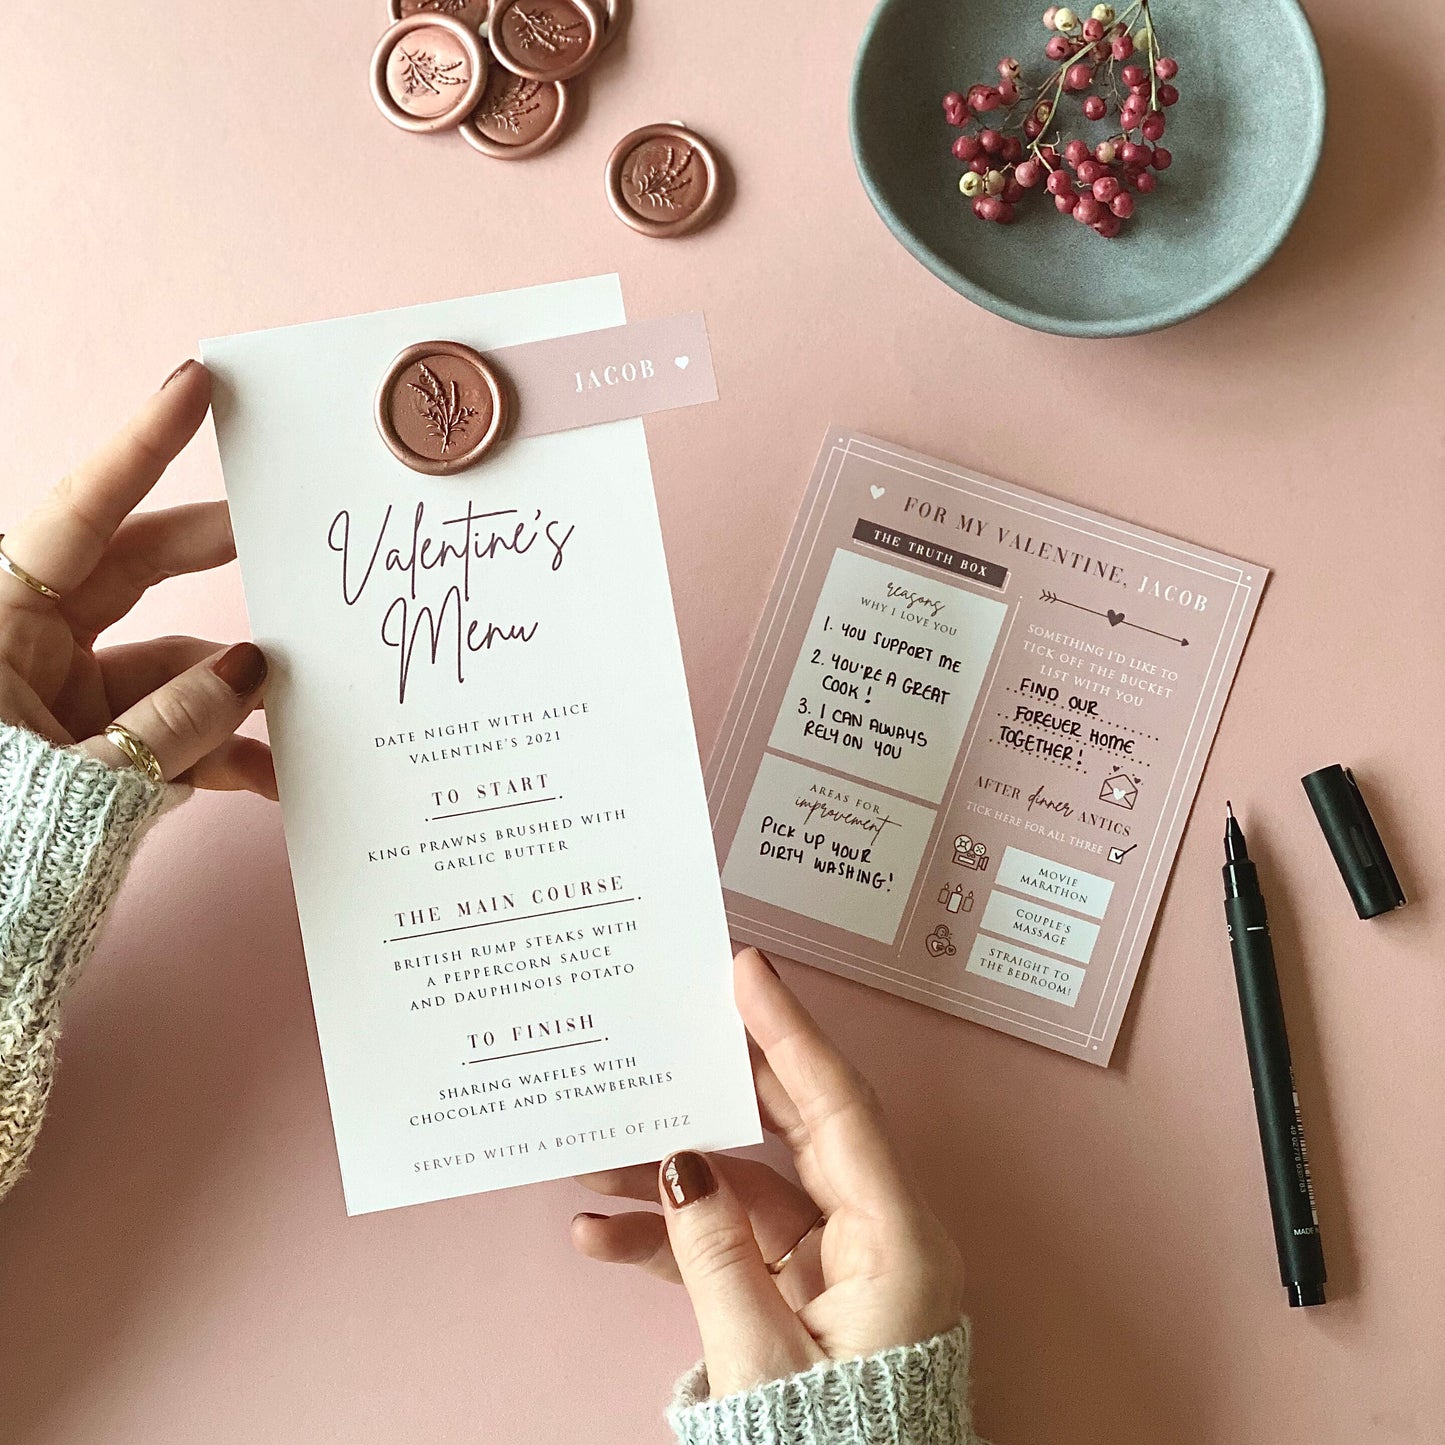 JACOB
Valentine's
Menu
DATE NIGHT WITH ALICE
VALENTINE'S 2021
TO START
KING PRAWNS BRUSHED WITH
GARLIC BUTTER
THE MAIN COURSE
BRITISH RUMP STEAKS WITH
A PEPPERCORN SAUCE
AND DAUPHINOIS POTATO
TO FINISH
SHARING WAFFLES WITH
CHOCOLATE AND STRAWBERRIES
SERVED WITH A BOTTLE OF FIZZ
FOR MY VALENTINE, JACOB
THE TRUTH BOX
reasons
WHY I LOVE YOU
1. YOU SUPPORT ME
2. YOU'RE A GREAT
COOK!
3. I CAN ALWAYS
RELY ON YOU
AREAS FOR
improvement
PICK UP YOUR
DIRTY WASHING!
SOMETHING I'D LIKE TO
TICK OFF THE BUCKET
LIST WITH YOU
FIND OUR
FOREVER HOME
TOGETHER!
AFTER dinner ANTICS
TICK HERE FOR ALL THREE
MOVIE
MARATHON
COUPLE'S
MASSAGE
STRAIGHT TO
THE BEDROOM!